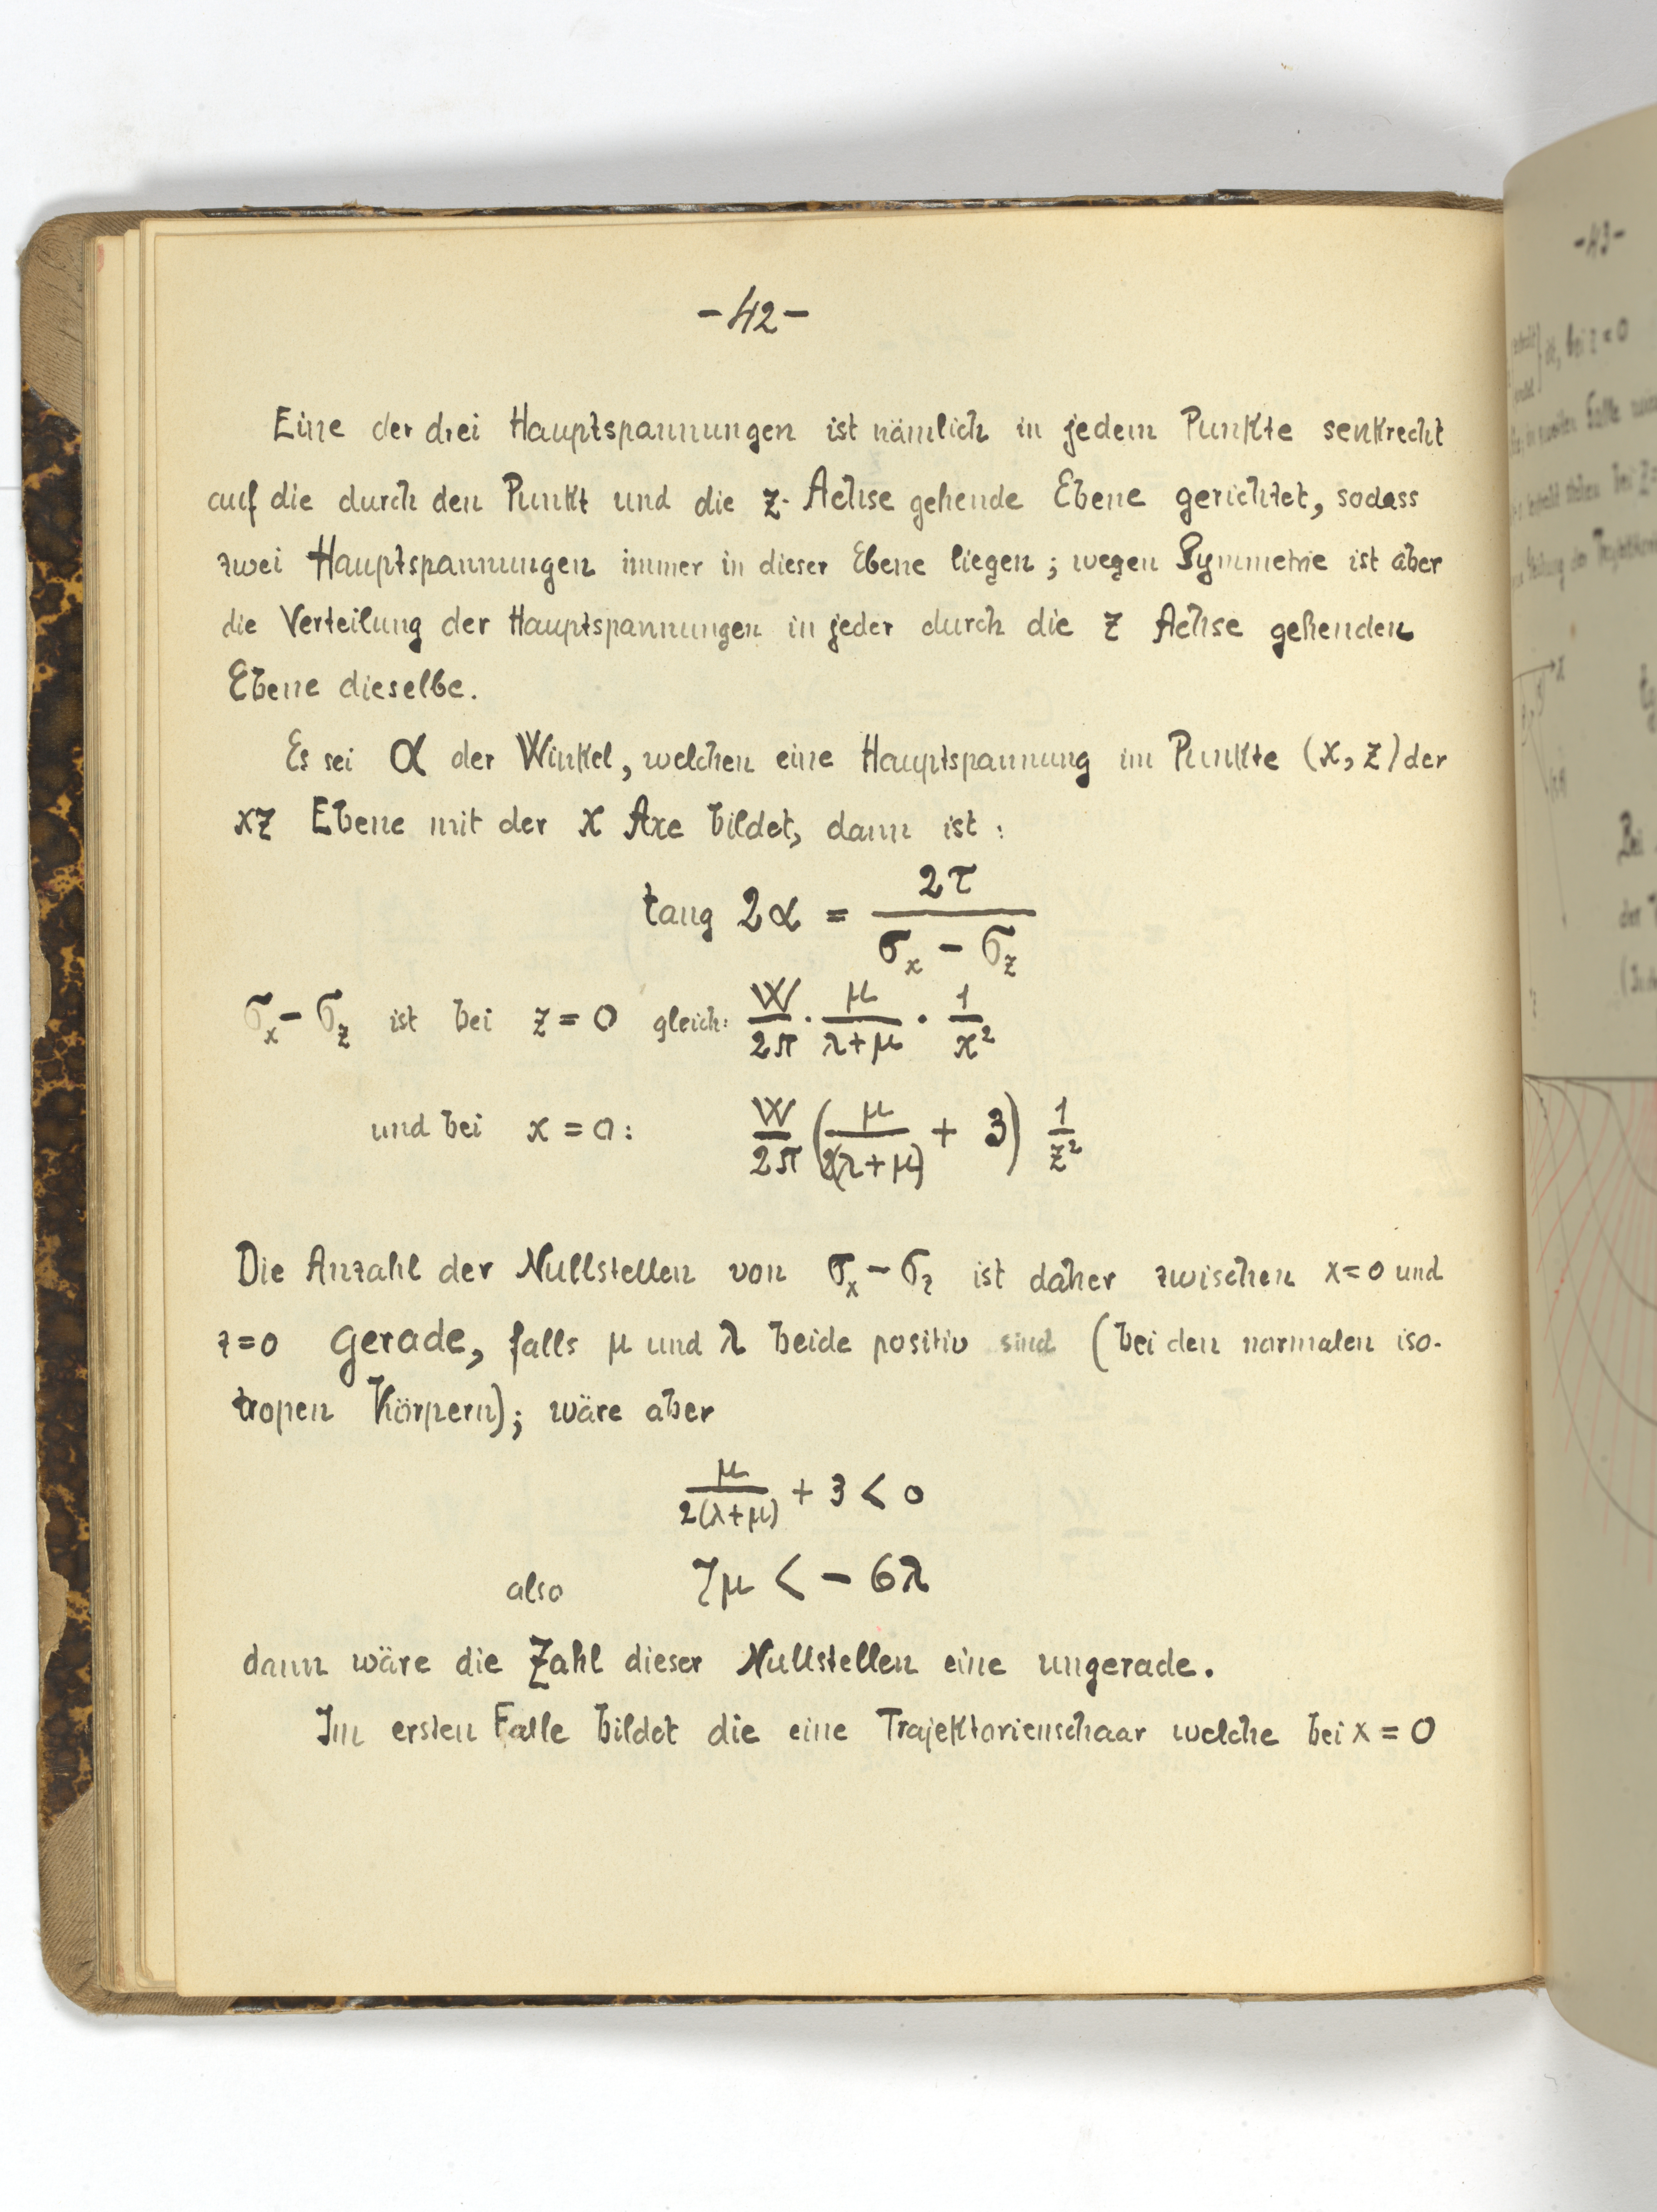 -42-
Eine der drei Hauptspannungen ist nämlich in jedem Punkte senkrecht
auf die durch den Punkt und die z-Achse gehende Ebene gerichtet, sodass
zwei Hauptspannungen immer in dieser Ebene liegen; wegen Symmetrie ist aber
die Verteilung der Hauptspannungen in jeder durch die z Achse gehenden
Ebene dieselbe.
Es sei α der Winkel, welchen eine Hauptspannung im Punkte (x, z) der
xz Ebene mit der x Axe bildet, dann ist:
tang 2α = 2τ / (σ_x − σ_z)
σ_x − σ_z ist bei z = 0 gleich: W/2π · μ/(λ+μ) · 1/x²
und bei x = 0: W/2π (μ/(2(λ+μ)) + 3) 1/z²
Die Anzahl der Nullstellen von σ_x − σ_z ist daher zwischen x=0 und
z=0 gerade, falls μ und λ beide positiv sind (bei den normalen iso-
tropen Körpern); wäre aber
μ/(2(λ+μ)) + 3 < 0
also 7μ < − 6λ
dann wäre die Zahl dieser Nullstellen eine ungerade.
Im ersten Falle bildet die eine Trajektorienschaar welche bei x = 0
-43-
bei z = 0
x
Bei
der